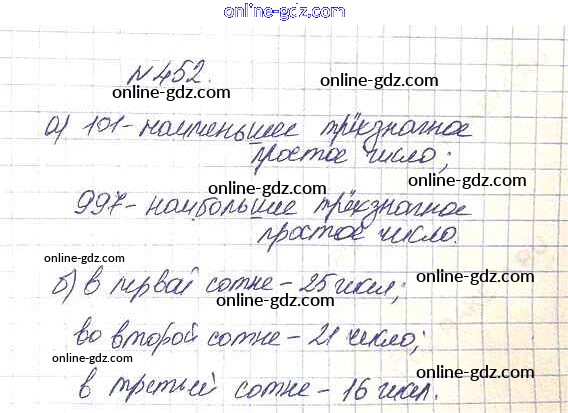 online-gdz.com
№ 452.
online-gdz.com online-gdz.com
а) 101 - наименьшее трёхзначное
online-gdz.com
простое число;
online-gdz.com online-gdz.com
997 - наибольшее трёхзначное
online-gdz.com
простое число.
online-gdz.com
online-gdz.com
б) в первой сотне - 25 чисел;
online-gdz.com
во второй сотне - 21 число;
online-gdz.com online-gdz.com
в третьей сотне - 16 чисел.
online-gdz.com